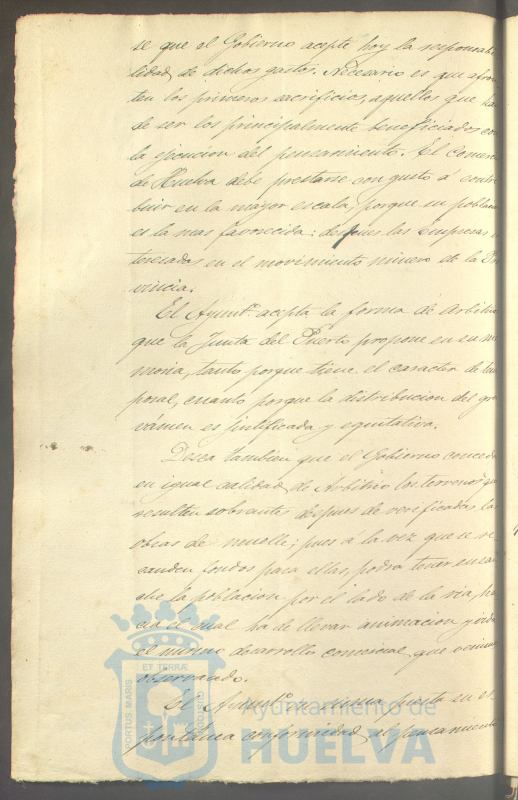 se que el Gobierno acepte hoy la responsabi
lidad de dichos gastos. Necesario es que afron
ten los primeros sacrificios, aquellos que han
de ser los principalmente beneficiados con
la ejecucion del pensamiento. El comerc
de Huelva debe prestarse con gusto á contri
buir en la mayor escala, porque su poblacion
es la mas favorecida: despues las empresas in
teresadas en el movimiento minero de la Pro
vincia.
El Ayunt.º acepta la forma de arbitrio
que la Junta del Puerto propone en su me
moria, tanto porque tiene el caracter de tem
poral, cuanto porque la distribucion del gra
vámen es justificada y equitativa.
Desea tambien que el Gobierno conceda
en igual calidad de Arbitrio los terrenos que
resulten sobrantes despues de verificadas las
obras de muelle; pues á la vez que se re
cauden fondos para ellas, podrá tener ensan
che la poblacion por el lado de la ria, ha
cia el cual ha de llevar animacion y vida
el mismo desarrollo comercial que venimos
observando.
El Ayunt.º en suma, presta su es
pontanea conformidad al pensamiento
PORTUS MARIS
ET TERRÆ
CUSTODIA
Ayuntamiento de
HUELVA